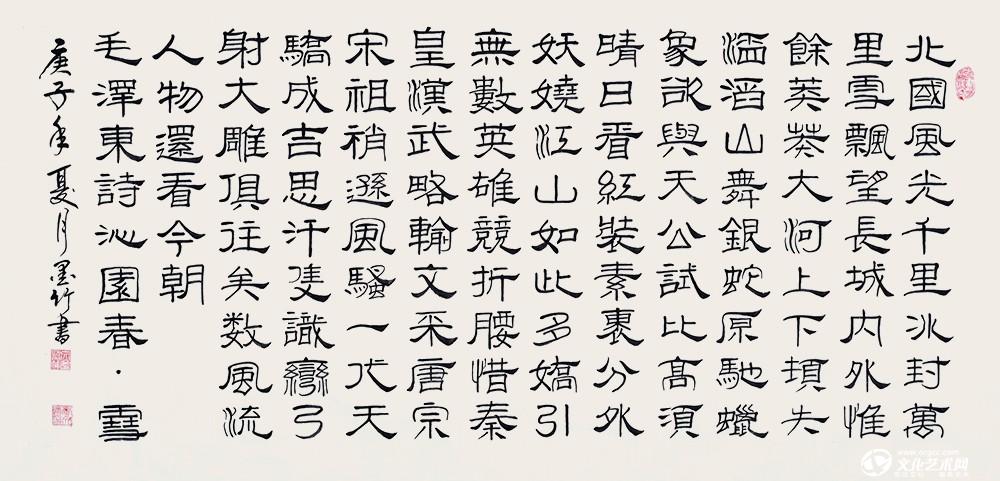 北國風光千里冰封萬
里雪飄望長城内外惟
餘莽莽大河上下頓失
滔滔山舞銀蛇原馳蠟
象欲與天公試比高須
晴日看紅裝素裹分外
妖嬈江山如此多嬌引
無數英雄競折腰惜秦
皇漢武略輸文采唐宗
宋祖稍遜風騷一代天
驕成吉思汗隻識彎弓
射大雕俱往矣数風流
人物還看今朝
毛澤東詩沁園春·雪
庚子年夏月墨竹書
www.orgcc.com
文化艺术网